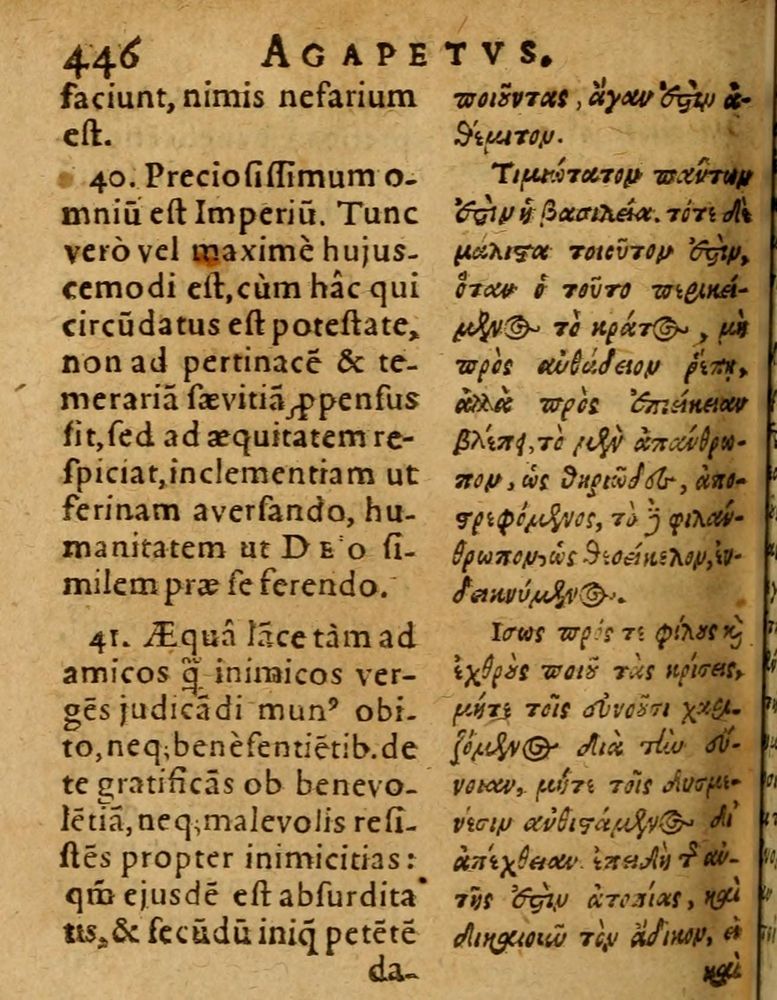 446 AGAPETVS.
faciunt, nimis nefarium
eſt.
40. Precioſiſſimum o-
mniũ eſt Imperiũ. Tunc
verò vel maximè hujus-
cemodi eſt, cùm hâc qui
circũdatus eſt poteſtate,
non ad pertinacẽ & te-
merariã ſævitiã ꝓpenſus
ſit, ſed ad æquitatem re-
ſpiciat, inclementiam ut
ferinam averſando, hu-
manitatem ut DEO ſi-
milem præ ſe ferendo.
41. Æquâ lãce tàm ad
amicos q̃ inimicos ver-
gẽs judicãdi munꝰ obi-
to, neq; benèſentiẽtib. de
te gratificãs ob benevo-
lẽtiã, neq; malevolis reſi-
ſtẽs propter inimicitias:
qm̃ ejusdẽ eſt abſurdita
tis, & ſecũdũ iniq̃ petẽtẽ
da-
ποιοῦντας, ἄγαν ἐστὶν ἀ-
θέμιτον.
Τιμιώτατον πάντων
ἐστὶν ἡ βασιλεία. τότε δὲ
μάλιστα τοιοῦτον ἐστὶν,
ὅταν ὁ τοῦτο περικεί-
μενος τὸ κράτος, μὴ
πρὸς αὐθάδειον ῥέπῃ,
ἀλλὰ πρὸς ἐπιείκειαν
βλέπῃ, τὸ μὲν ἀπάνθρω-
πον, ὡς θηριῶδες, ἀπο-
στρεφόμενος, τὸ δὲ φιλάν-
θρωπον, ὡς θεοείκελον, ἐν-
δεικνύμενος.
Ισως πρός τε φίλους καὶ
ἐχθροὺς ποιοῦ τὰς κρίσεις,
μήτε τοῖς εὐνοῦσι χαρι-
ζόμενος διὰ τὴν εὔ-
νοιαν, μήτε τοῖς δυσμε-
νέσιν ἀνθιστάμενος δι'
ἀπέχθειαν. ἐπειδὴ τῆς αὐ-
τῆς ἐστὶν ἀτοπίας, καὶ
δικαιοῦν τὸν ἄδικον, εἰ
καὶ